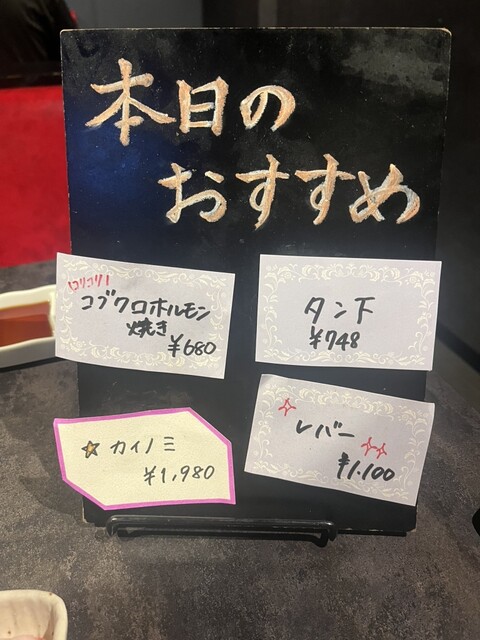 本日の
おすすめ
コリコリ!
コブクロホルモン
焼き
¥680
タン下
¥748
レバー
¥1.100
カイノミ
¥1,980